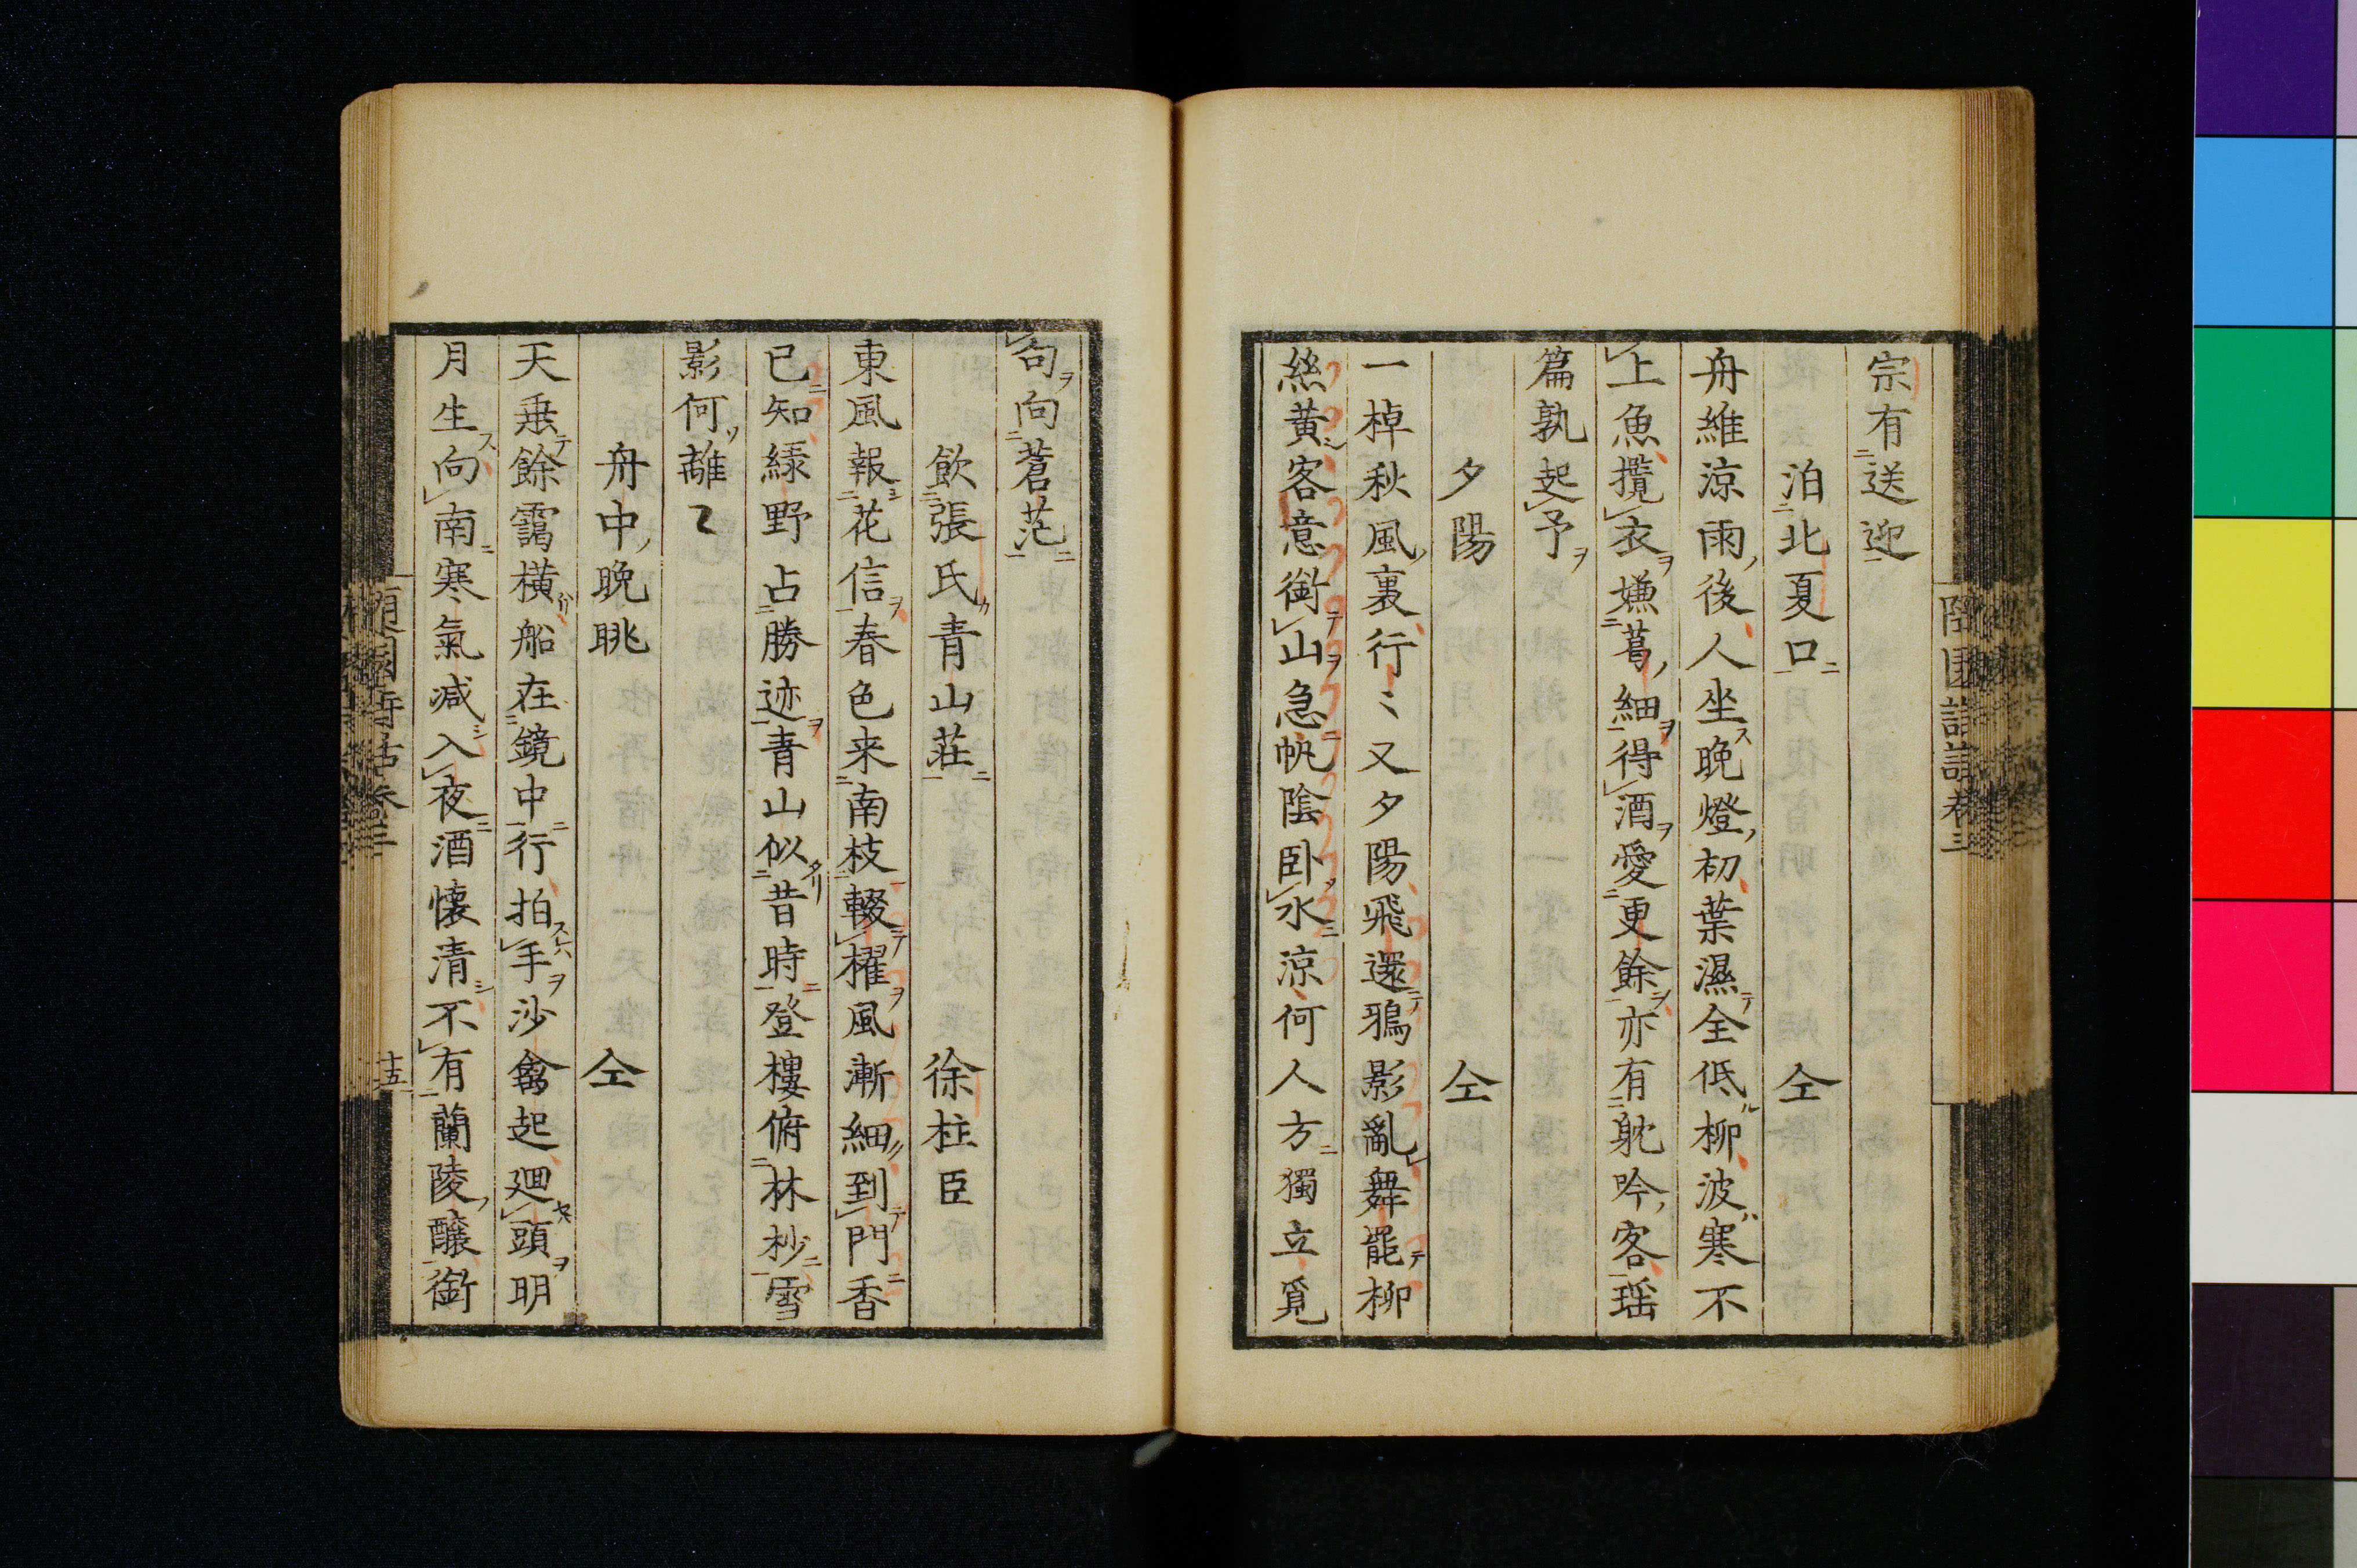 宗有送迎
泊北夏口 仝
舟維涼雨後人坐晚燈初葉濕全低柳波寒不
上魚攬衣嫌葛細得酒愛更餘亦有躭吟客瑶
篇孰起予
夕陽 仝
一棹秋風裏行〻又夕陽飛還鴉影亂舞罷柳
絲黄客意銜山急帆陰卧水涼何人方獨立覓
句向蒼茫
飲張氏青山莊 徐柱臣
東風報花信春色来南枝輟櫂風漸細到門香
已知緑野占勝迹青山似昔時登樓俯林杪雪
影何離〻
舟中晚眺 仝
天垂餘靄横船在鏡中行拍手沙禽起廻頭明
月生向南寒氣減入夜酒懷清不有蘭陵醸銜
十五